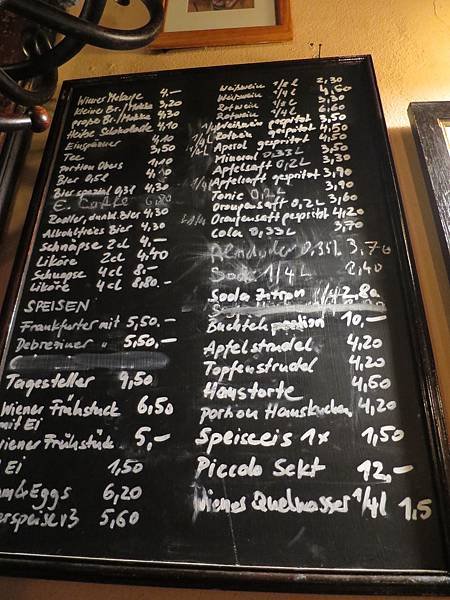 Wiener Melange 4,—
kleine Br./Mokka 3,20
große Br./Mokka 4,30
Heiße Schokolade 4,10
Einspänner 4,10
Tee 3,50
Portion Obers 1,10
Bier 0,5l 4,10
Bier spezial 0,3l 4,30
E. Caffe 6,80
Radler, dunkl. Bier 4,30
Alkoholfreies Bier 4,30
Schnäpse 2cl 4,—
Liköre 2cl 4,40
Schnapse 4cl 8.—
Liköre 4cl 8,80.-
SPEISEN
Frankfurter mit 5,50.—
Debreziner " 5,60,—
Tagesteller 9,50
Wiener Frühstück 6,50
mit Ei
iener Frühstück 5,—
Ei 1,50
m&Eggs 6,20
erspeise v3 5,60
Weißwein 1/8 L 2,30
Weißwein 1/4 L 4,50
Rotwein 1/8 L 2,30
Rotwein 1/4 L 4,60
1/4 L Weißwein gespritzt 3,50
1/4 L Rotwein gespritzt 3,50
Aperol gespritzt 4,50
Mineral 0,33L 3,50
Apfelsaft 0,2L 3,30
1/4 L Apfelsaft gespritzt 3,90
Tonic 0,2L 3,90
Orangensaft 0,2L 3,60
Orangensaft gespritzt 4,20
Cola 0,33L 3,70
Almdudler 0,35L 3,70
Soda 1/4L 2,40
Soda Zitron 1/4 2,80
Buchteln portion 10,—
Apfelstrudel 4,20
Topfenstrudel 4,20
Haustorte 4,50
portion Hauskuchen 4,20
Speiseeis 1x 1,50
Piccolo Sekt 12,—
Wiener Quellwasser 1/4l 1,5